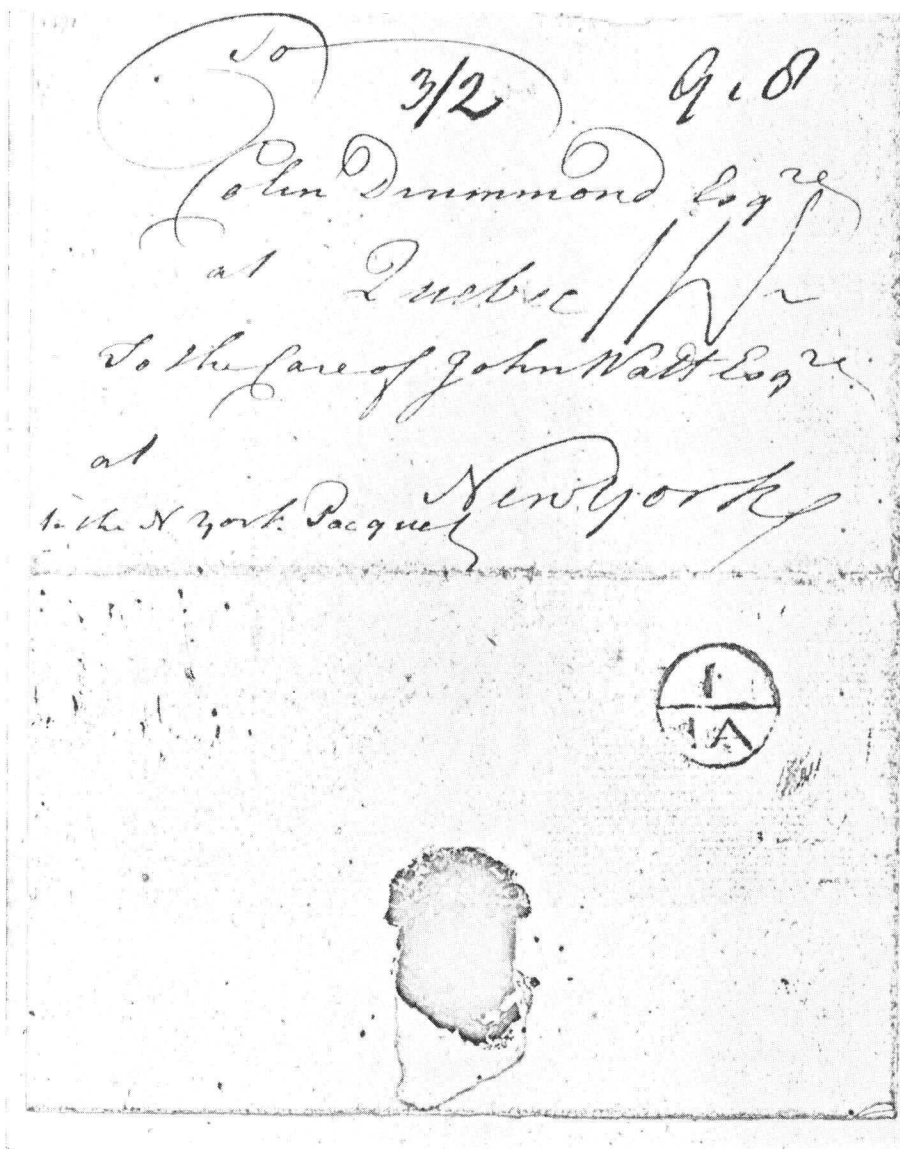 To
3/2 9.8
Colin Drummond Esqre
at Quebec
To the Care of John Watt Esqre
at
New York
the N York Pacquet
1
IA